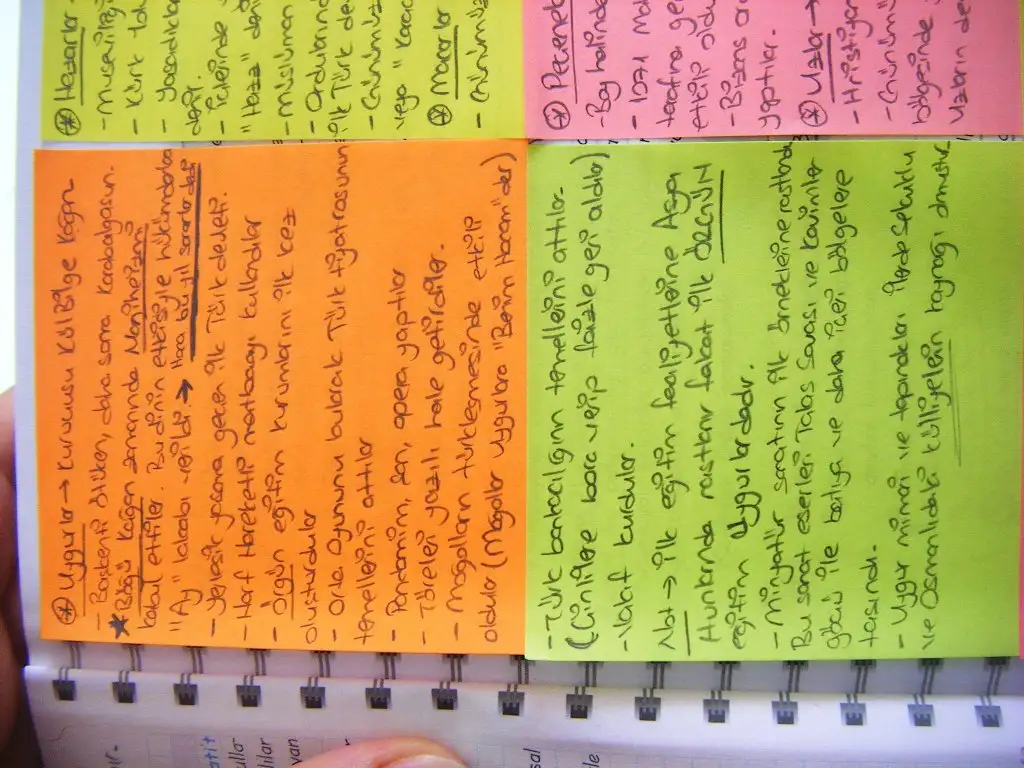 * Uygurlar → Kurucusu Kutluk Bilge Kağan
- Başkenti Ötüken, daha sonra Karabalgasun.
* Bögü Kağan zamanında Maniheizmi
kabul ettiler. Bu dinin etkisiyle hükümdarlara
"Ay" lakabı verildi. →
- Yerleşik yaşama geçen ilk Türk devleti.
- Harf hareketli matbaayı kullandılar
- Örgün eğitim kurumlarını ilk kez
oluşturdular
- Orta Oyununu bularak Türk tiyatrosunun
temellerini attılar
- Pandomim, şan, opera yaptılar
- Töreleri yazılı hale getirdiler.
- Moğolların türkleşmesinde etkili
oldular (Moğollar Uygurlara "Benim Hocam" der)
- Türk bankacılığının temellerini attılar.
(Çinlilere borç verip faizle geri aldılar)
- Vakıf kurdular.
Not → İlk eğitim faaliyetlerine Asya
Hunlarında rastlanır fakat ilk ÖRGÜN
eğitim Uygurlardadır.
- Minyatür sanatının ilk örneklerine rastlandı
Bu sanat eserleri Talas Savaşı ve Kavimler
göçü ile batıya ve daha ileri bölgelere
taşındı.
- Uygur mimari ve tapınakları ileride Selçuklu
ve Osmanlıdaki külliyelerin kaynağı olmuştur
* Hazarlar
- Musevili
- Kürk
-
- Ülkelerinde
"Haz" den
- Müslüman
- Ordularında
ilk Türk dev
- Günümüz
veya "Kara
* Macarlar
- Günümüz
* Peçenek
- Boy halinde
- 1071 Mal
tarafına ge
etkili oldu
- Bizans or
yaptılar.
* Uzlar →
- Hristiyan
- Günümü
bölgesinde
Uzların de